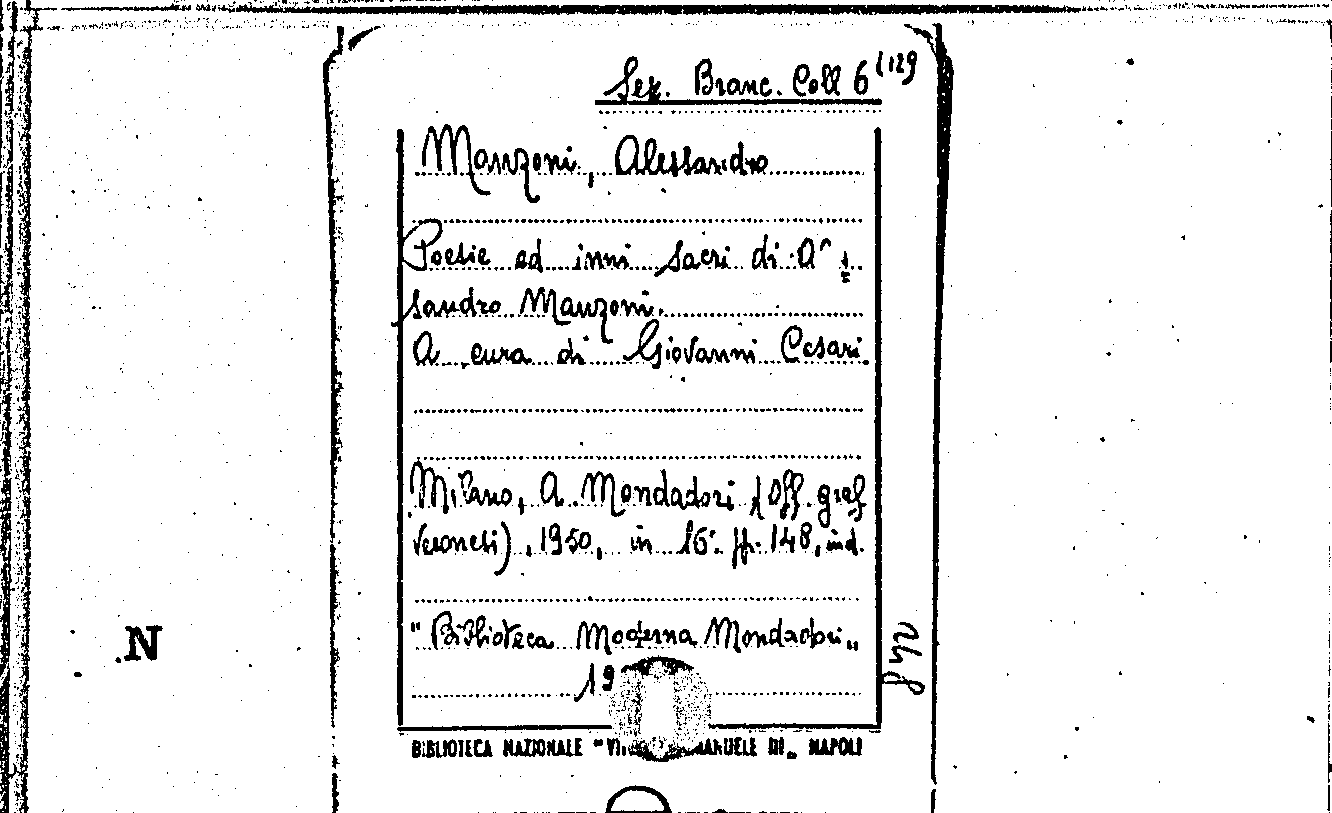 Sez. Branc. Coll 6 (129
Manzoni, Alessandro
Poesie ed inni sacri di A
sandro Manzoni.
A cura di Giovanni Cesari.
Milano, A. Mondadori (Off. graf
Veronesi), 1950, in 16º. pp. 148, ind.
"Biblioteca Moderna Mondadori„
19
BIBLIOTECA NAZIONALE "VI ANUELE III„ NAPOLI
N